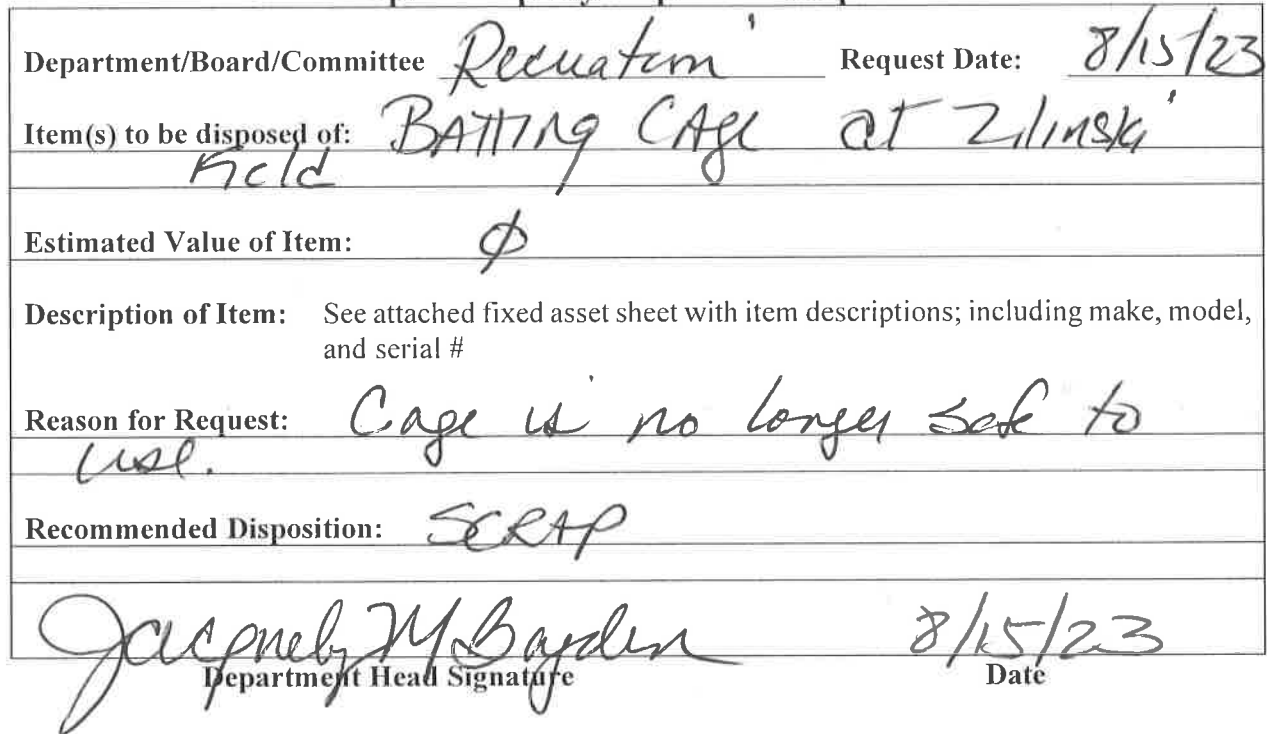 Department/Board/Committee Recreation Request Date: 8/15/23
Item(s) to be disposed of: BATTING CAge at Zilinski
Field
Estimated Value of Item: ∅
Description of Item: See attached fixed asset sheet with item descriptions; including make, model,
and serial #
Reason for Request: Cage is no longer safe to
use.
Recommended Disposition: SCRAP
Jacquelyn M Boyden 8/15/23
Department Head Signature Date